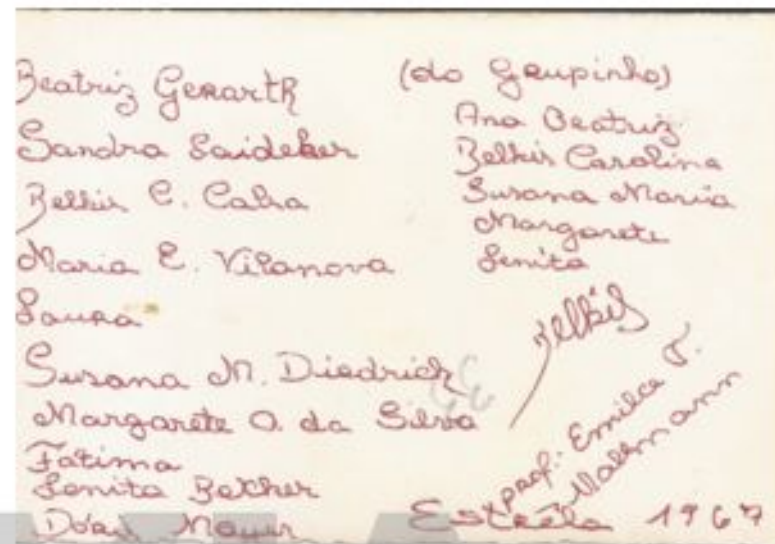 Beatriz Gerarth
Sandra Saideker
Belkis C. Calra
Maria E. Vilanova
Laura
Susana M. Diedrich
Margarete O. da Silva
Fatima
Lenita Becher
Mayer
(do Grupinho)
Ana Beatriz
Belkis Carolina
Susana Maria
Margarete
Lenita
Belkis
prof: Emilce J.
Mallmann
Estrêla 1967